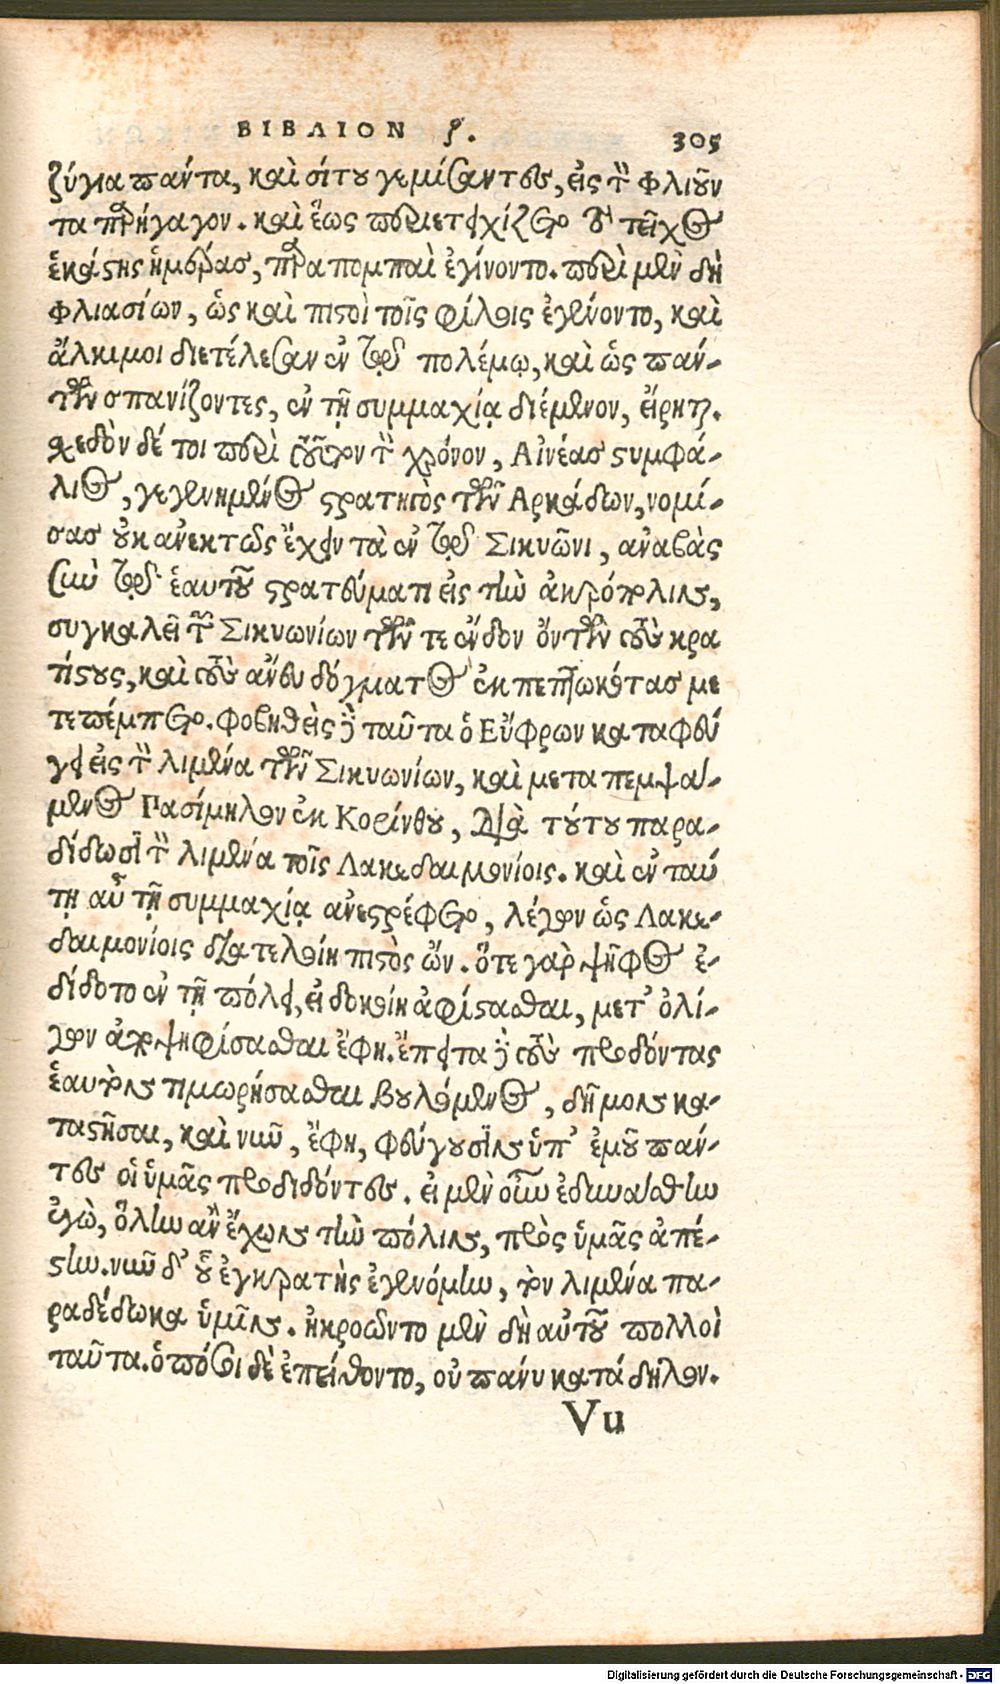 ΒΙΒΛΙΟΝ ϛ. 305
ζύγια πάντα, καὶ σίτου γεμίσαντες, εἰς τὸν Φλιοῦν
τα παρήγαγον. καὶ ἕως περιετειχίζετο τὸ τεῖχος
ἑκάστης ἡμέρας, παραπομπαὶ ἐγίνοντο. περὶ μὲν δὴ
Φλιασίων, ὡς καὶ πιστοὶ τοῖς φίλοις ἐγένοντο, καὶ
ἄλκιμοι διετέλεσαν ἐν τῷ πολέμῳ, καὶ ὡς πάν-
των σπανίζοντες, ἐν τῇ συμμαχίᾳ διέμενον, εἴρηται.
σχεδὸν δέ τοι περὶ τοῦτον τὸν χρόνον, Αἰνέας στυμφά-
λιος, γεγενημένος στρατηγὸς τῶν Αρκάδων, νομί-
σας οὐκ ἀνεκτῶς ἔχειν τὰ ἐν τῷ Σικυῶνι, ἀναβὰς
σὺν τῷ ἑαυτοῦ στρατεύματι εἰς τὴν ἀκρόπολιν,
συγκαλεῖ τῶν Σικυωνίων τῶν τε ἔνδον ὄντων τοὺς κρα
τίστους, καὶ τοὺς ἄνευ δόγματος ἐκπεπτωκότας με
τεπέμπετο. φοβηθεὶς δὲ ταῦτα ὁ Εὔφρων καταφεύ
γει εἰς τὸν λιμένα τῶν Σικυωνίων, καὶ μεταπεμψά-
μενος Πασίμηλον ἐκ Κορίνθου, διὰ τούτου παρα-
δίδωσι τὸν λιμένα τοῖς Λακεδαιμονίοις. καὶ ἐν ταύ
τῃ αὖ τῇ συμμαχίᾳ ἀνεστρέφετο, λέγων ὡς Λακε-
δαιμονίοις διατελοίη πιστὸς ὤν. ὅτε γὰρ ψῆφος ἐ-
δίδοτο ἐν τῇ πόλει, εἰ δοκοίη ἀφίστασθαι, μετ' ὀλί-
γων ἀποψηφίσασθαι ἔφη. ἔπειτα δὲ τοὺς προδόντας
ἑαυτὸν τιμωρήσασθαι βουλόμενος, δῆμον κα-
ταστῆσαι, καὶ νῦν, ἔφη, φεύγουσιν ὑπ' ἐμοῦ πάν-
τες οἱ ὑμᾶς προδιδόντες. εἰ μὲν οὖν ἐδυνάσθην
ἐγὼ, ὅλην ἂν ἔχων τὴν πόλιν, πρὸς ὑμᾶς ἀπέ-
στην. νῦν δ' οὗ ἐγκρατὴς ἐγενόμην, τὸν λιμένα πα-
ραδέδωκα ὑμῖν. ἠκροῶντο μὲν δὴ αὐτοῦ πολλοὶ
ταῦτα. ὁπόσοι δὲ ἐπείθοντο, οὐ πάνυ κατάδηλον.
Vu
Digitalisierung gefördert durch die Deutsche Forschungsgemeinschaft - DFG